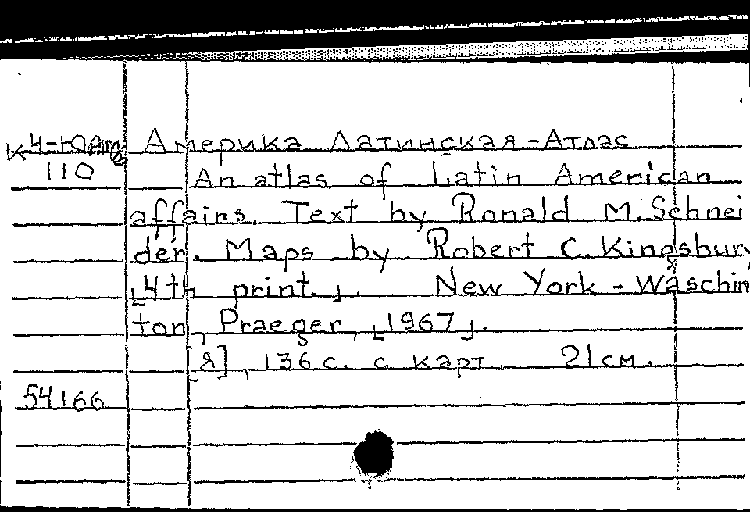 Америка Латинская - Атлас
110
An atlas of Latin American
affairs. Text by Ronald M. Schnei
der. Maps by Robert C. Kingsbury
[4th print.]. New York - Waschin
ton, Praeger, [1967].
[8], 136 с. с карт 21 см.
54166